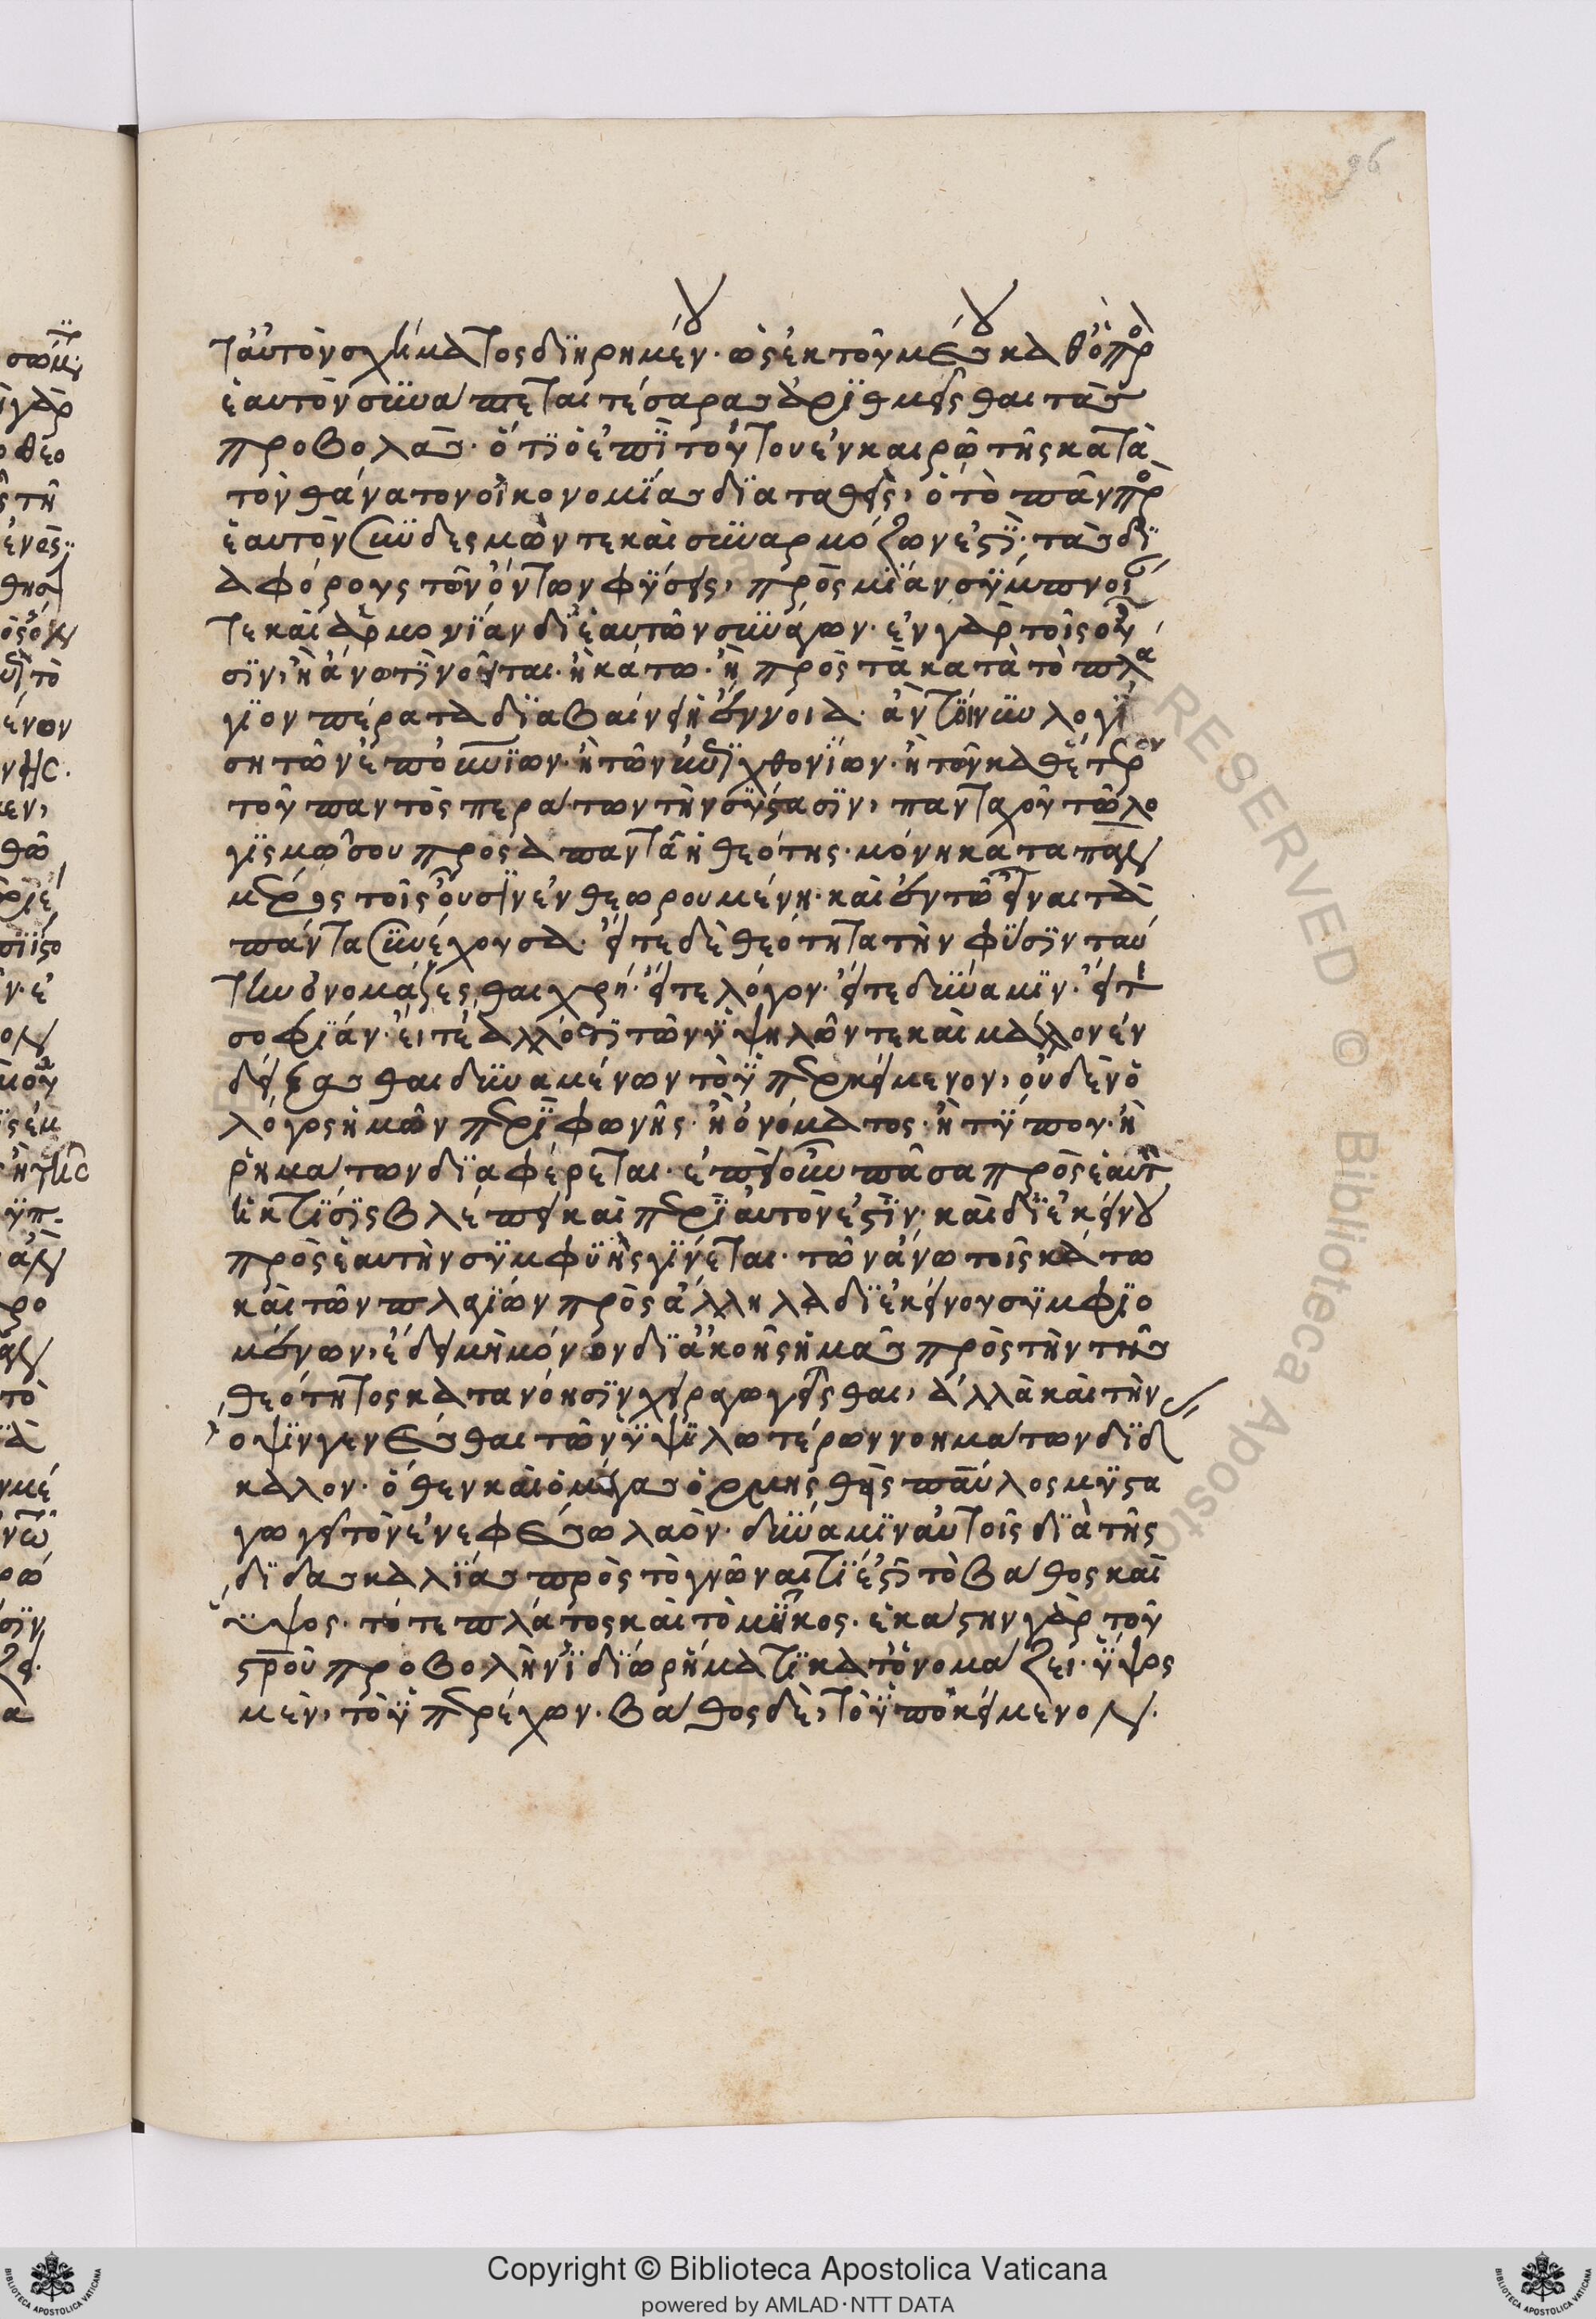 ταυτὸν σχήματος διηρημένου. ὡς ἐκ τοῦ μέσου καθ' ὃ πρὸς
ἑαυτὸν συνάπτεται τέσσαρας ἀριθμεῖσθαι τὰς
προβολάς. ὅτι ὁ ἐπὶ τούτου ἐν καιρῷ τῆς κατὰ
τὸν θάνατον οἰκονομίας διαταθείς, ὁ τὸ πᾶν πρὸς
ἑαυτὸν συνδεσμῶν τε καὶ συναρμόζων ἐστί. τὰς δι
αφόρους τῶν ὄντων φύσεις, πρὸς μίαν σύμπνοιαν
τε καὶ ἁρμονίαν δι' ἑαυτῶν συνάγων. ἐν γὰρ τοῖς οὖ
σιν, ἢ ἄνω τι νοεῖται. ἢ κάτω. ἢ πρὸς τὰ κατὰ τὸ πλά
γιον πέρατα διαβαίνει ἡ ἔννοια. ἂν τοίνυν λογί
ση τῶν ἐπουρανίων. ἢ τῶν ὑποχθονίων. ἢ τῶν καθ' ἑκάτερον
τοῦ παντὸς περάτων τὴν σύστασιν, πανταχοῦ τῷ λο
γισμῷ σου προσαπαντᾷ ἡ θεότης. μόνη κατὰ πᾶν
μέρος τοῖς οὖσιν ἐνθεωρουμένη. καὶ ἐν τῷ εἶναι τὰ
πάντα συνέχουσα. εἴτε δὲ θεότητα τὴν φύσιν ταύ
την ὀνομάζεσθαι χρή. εἴτε λόγον. εἴτε δύναμιν. εἴτε
σοφίαν. εἴτε ἄλλό τι τῶν ὑψηλῶν τε καὶ μᾶλλον ἐν
δείξασθαι δυναμένων τὸ ὑπερκείμενον, οὐδὲν ὁ
λόγος ἡμῶν περὶ φωνῆς. ἢ ὀνόματος. ἢ τύπου. ἢ
ῥημάτων διαφέρεται. ἐπεὶ οὖν πᾶσα πρὸς ἑαυτὸν
ἡ κτίσις βλέπει καὶ περὶ αὐτόν ἐστιν. καὶ δι' ἐκείνου
πρὸς ἑαυτὴν συμφυὴς γίνεται. τῶν ἄνω τοῖς κάτω
καὶ τῶν πλαγίων πρὸς ἄλληλα δι' ἐκείνου συμφυο
μένων, ἔδει μὴ μόνον δι' ἀκοῆς ἡμᾶς πρὸς τὴν τῆς
θεότητος κατανόησιν χειραγωγεῖσθαι, ἀλλὰ καὶ τὴν
ὄψιν γενέσθαι τῶν ὑψηλοτέρων νοημάτων διδάς
καλον. ὅθεν καὶ ὁ μέγας ὁρμηθεὶς παῦλος μυστα
γωγεῖ τὸν ἐν ἐφέσω λαόν. δύναμιν αὐτοῖς διὰ τῆς
διδασκαλίας πρὸς τὸ γνῶναι τί ἐστι τὸ βάθος καὶ
ὕψος. τό τε πλάτος καὶ τὸ μῆκος. ἑκάστην γὰρ τοῦ
σταυροῦ προβολὴν ἰδίῳ ῥήματι κατονομάζει. ὕψος
μὲν, τὸ ὑπερέχων. βάθος δὲ, τὸ ὑποκείμενον.
Copyright © Biblioteca Apostolica Vaticana
powered by AMLAD·NTT DATA